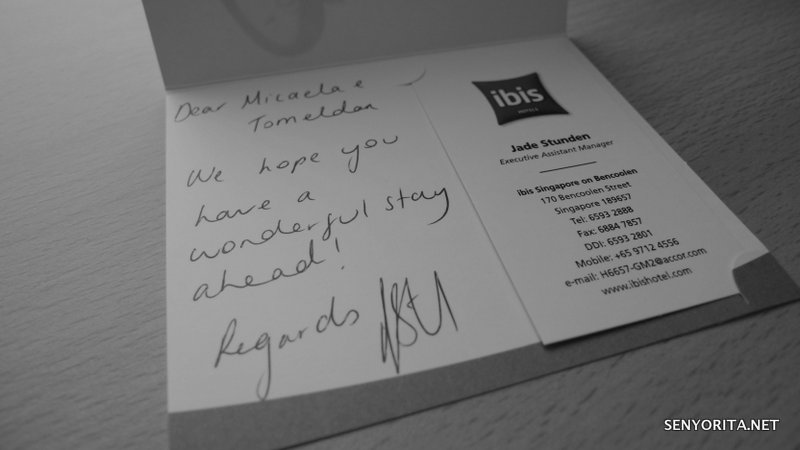 Dear Micaela e
Tomeldan
We hope you
have a
wonderful stay
ahead!
Regards
ibis
HOTELS
Jade Stunden
Executive Assistant Manager
ibis Singapore on Bencoolen
170 Bencoolen Street
Singapore 189657
Tel: 6593 2888
Fax: 6884 7857
DDI: 6593 2801
Mobile: +65 9712 4556
e-mail: H6657-GM2@accor.com
www.ibishotel.com
SENYORITA.NET